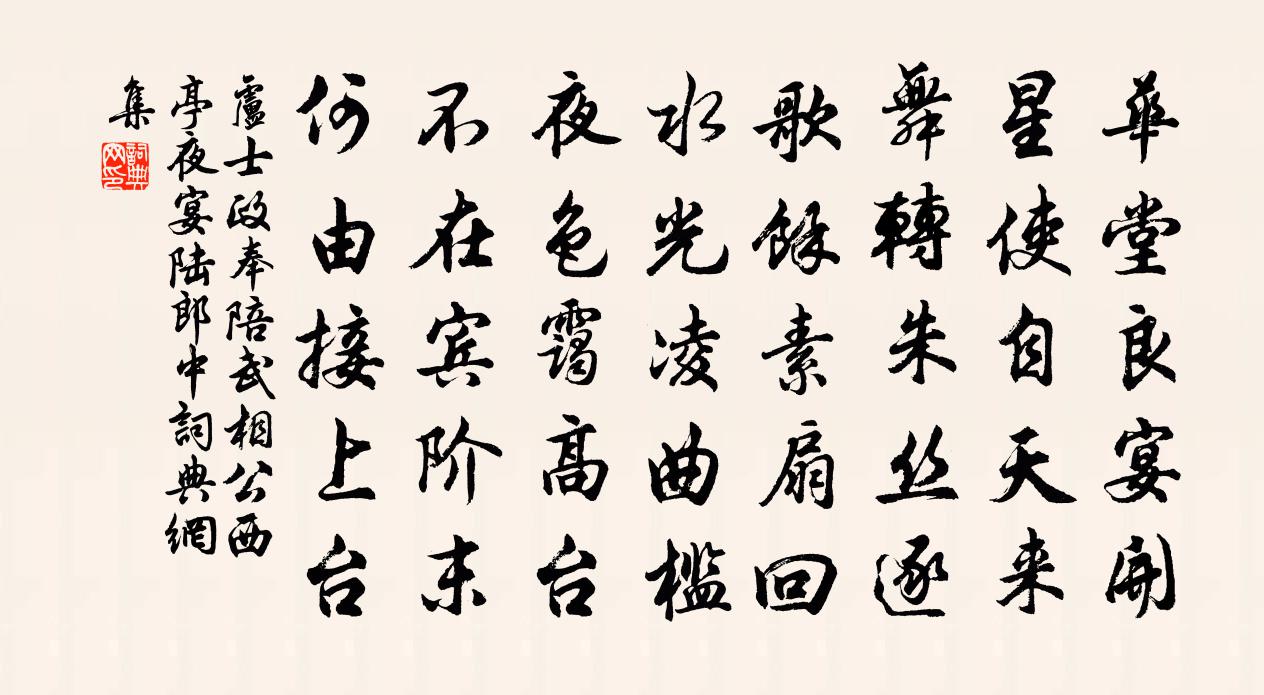 華堂良宴開
星使自天来
舞轉朱丝逐
歌餘素扇回
水光凌曲槛
夜色霭高台
不在宾阶末
何由接上台
盧士政奉陪武相公西
亭夜宴陆郎中詞典網
集
詞典網印